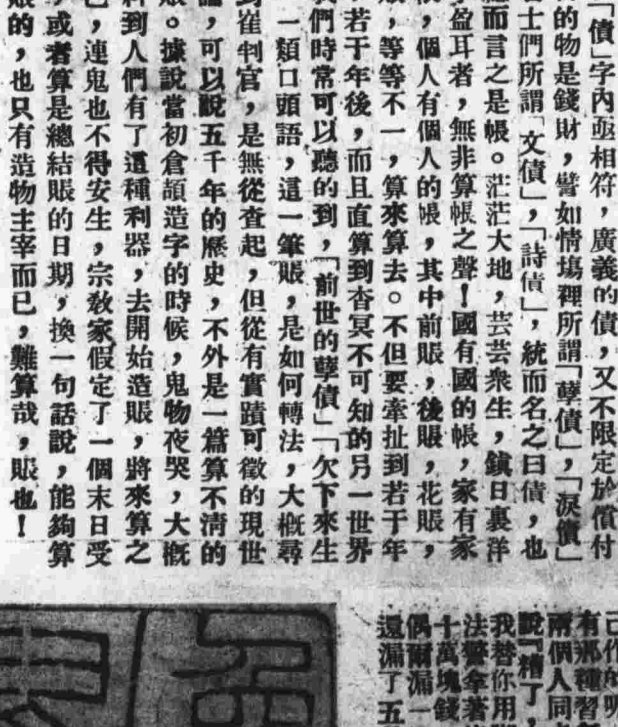 「債」字內亟相符，廣義的債，又不限定於償付
的物是錢財，譬如情塲裡所謂「孽債」，「淚債」
士們所謂「文債」，「詩債」，統而名之曰債，也
而言之是帳。茫茫大地，芸芸衆生，鎮日裏洋
盈耳者，無非算帳之聲！國有國的帳，家有家
，個人有個人的帳，其中前賬，後賬，花賬，
，等等不一，算來算去。不但要牽扯到若干年
若干年後，而且直算到杳冥不可知的另一世界
們時常可以聽的到，「前世的孽債」「欠下來生
一類口頭語，這一筆賬，是如何轉法，大槪尋
到崔判官，是無從查起，但從有實蹟可徵的現世
，可以說五千年的歷史，不外是一篇算不清的
。據說當初倉頡造字的時候，鬼物夜哭，大槪
料到人們有了這種利器，去開始造賬，將來算之
，連鬼也不得安生，宗敎家假定了一個末日受
，或者算是總結賬的日期，換一句話說，能夠算
賬的，也只有造物主宰而已，難算哉，賬也！
己作的
有那種習
兩個人同
說『糟了，
我替你用
法幣拿著
十萬塊錢
偶爾漏一
還漏了五